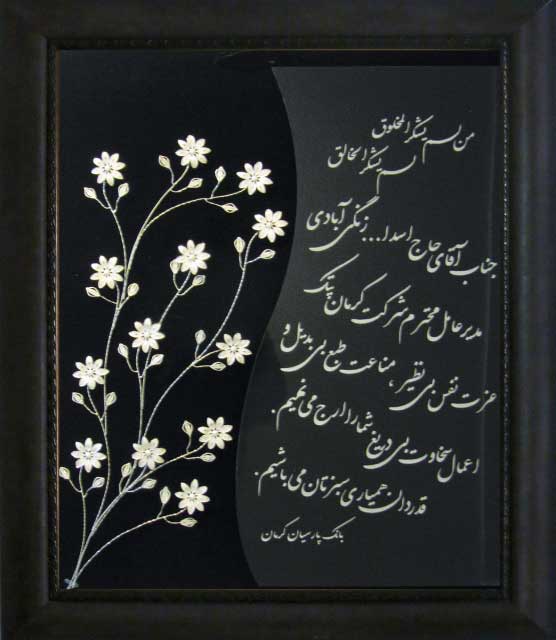 من لم یشکر المخلوق
لم یشکر الخالق
جناب آقای حاج اسدا... زنگی آبادی
مدیر عامل محترم شرکت کرمان پتک
عزت نفس بی نظیر، مناعت طبع بی بدیل و
اعمال سخاوت بی دریغ شما را ارج می نهیم.
قدردان همیاری سبزتان می باشیم.
بانک پارسیان کرمان